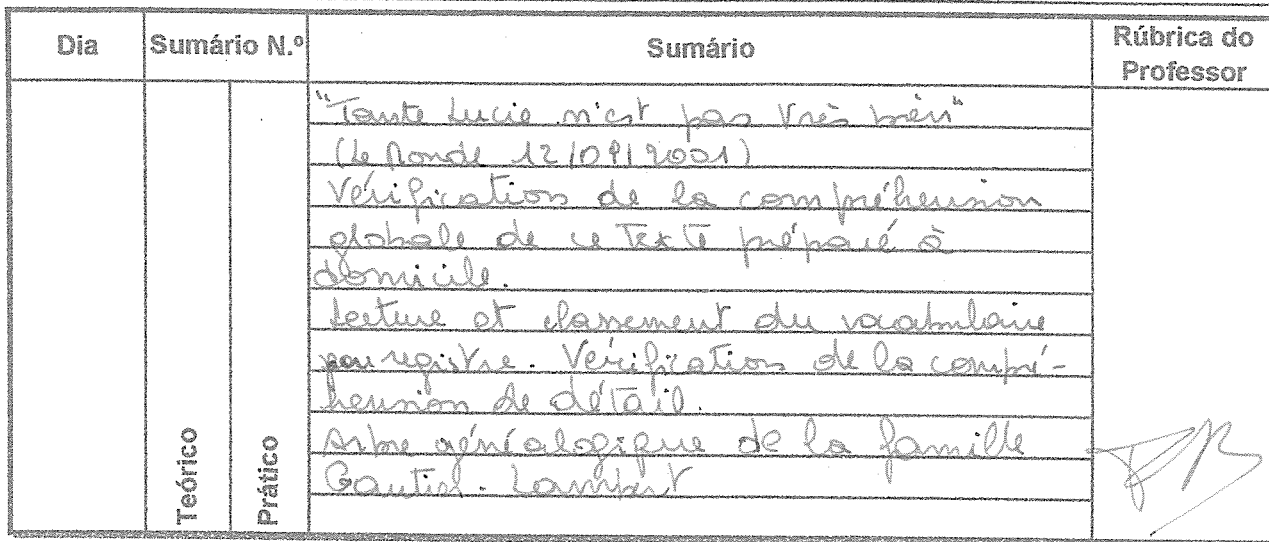 Dia Sumário N.º Sumário Rúbrica do Professor
Teórico
Prático
"Tante Lucie n'est pas très bien"
(Le Monde 12/09/2001)
Vérification de la compréhension
globale de ce texte préparé à
domicile.
Lecture et classement du vocabulaire
par registre. Vérification de la compré-
hension de détail.
Arbre généalogique de la famille
Gautier. Lambert